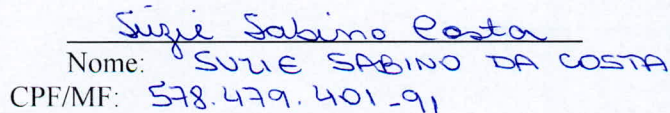 Suzie Sabino Costa
Nome: SUZIE SABINO DA COSTA
CPF/MF: 578.479.401-91